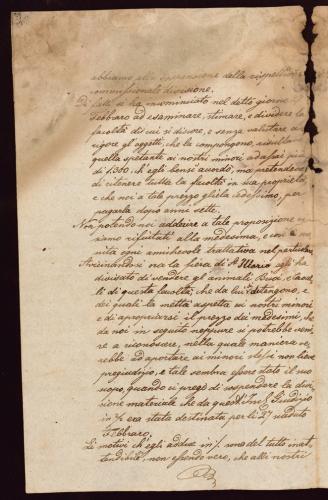 abbiamo alla formazione della rispettiva
convenzionale divisione.
Di fatti si ha incominciato nel detto giorno
Febbraro ad esaminare, stimare, e dividere la
facoltà di cui si discore, e senza valutare a
rigore gl'oggetti, che la compongono, risultò
quella spetante ai nostri minori ad assai più
di f. 360, ch'egli bensi accordò, ma pretendeva
di ritenere tutta la facoltà in sua proprietà
e che noi a tale prezzo gliela cedessimo, per
pagarla dopo anni sette.
Non potendo noi adderire a tale proposizione
siamo rifiutati alla medesima, e con
ogni amichevole trattativa nel particolare
Avicinandosi ora la fiera di S. Marco egli ha
divisato di vendere gli animali
li di questa facoltà, che da lui si detengono, e
dei quali la metta aspetta ai nostri minori
e di apropriarsi il prezzo dei medesimi, che
da noi in seguito neppure si potrebbe veni-
re a riconoscere, nella quale maniera ver-
rebbe ad aportare ai minori stessi non lieve
pregiudizio, e tale sembra essere stato il suo
scopo, quando ci pregò di suspendere la divi-
sione materiale che da quest' Giudizio
in era stata destinata per li 27 caduto
Febbraro.
Li motivi ch'egli adduce in sono del tutto
non essendo vero, che alli nostri